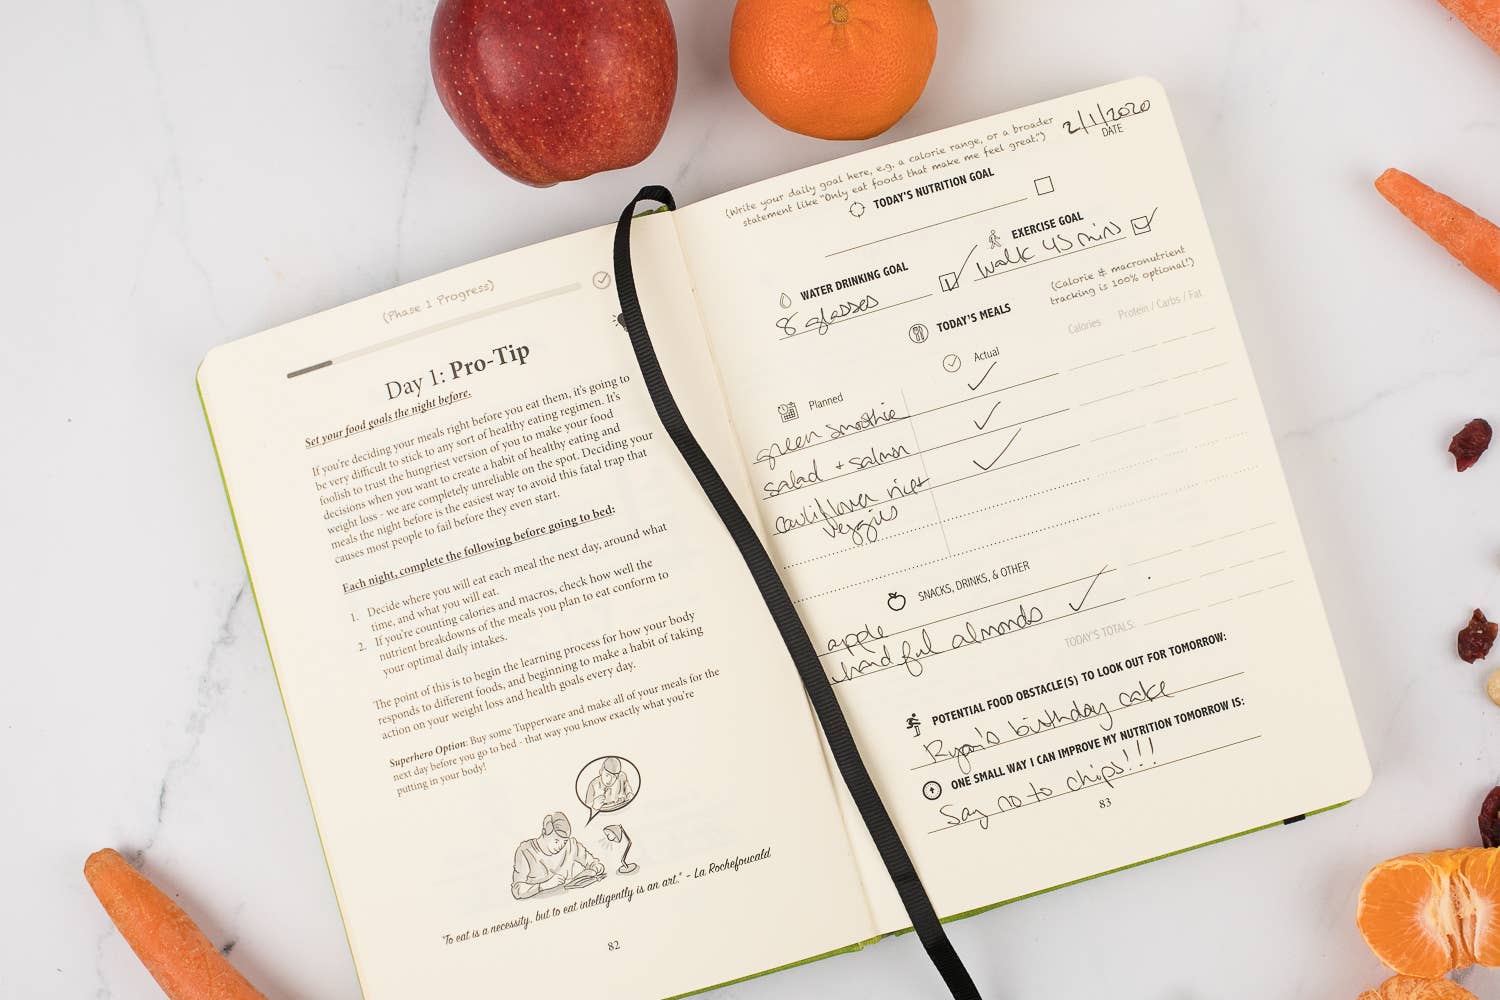 (Phase 1 Progress)
Day 1: Pro-Tip
Set your food goals the night before.
If you're deciding your meals right before you eat them, it's going to
be very difficult to stick to any sort of healthy eating regimen. It's
foolish to trust the hungriest version of you to make your food
decisions when you want to create a habit of healthy eating and
weight loss - we are completely unreliable on the spot. Deciding your
meals the night before is the easiest way to avoid this fatal trap that
causes most people to fail before they even start.
Each night, complete the following before going to bed:
1. Decide where you will eat each meal the next day, around what
time, and what you will eat.
2. If you're counting calories and macros, check how well the
nutrient breakdowns of the meals you plan to eat conform to
your optimal daily intakes.
The point of this is to begin the learning process for how your body
responds to different foods, and beginning to make a habit of taking
action on your weight loss and health goals every day.
Superhero Option: Buy some Tupperware and make all of your meals for the
next day before you go to bed - that way you know exactly what you're
putting in your body!
"To eat is a necessity, but to eat intelligently is an art." - La Rochefoucald
82
2/1/2020
DATE
(Write your daily goal here, e.g. a calorie range, or a broader
statement like "Only eat foods that make me feel great.")
TODAY'S NUTRITION GOAL
WATER DRINKING GOAL
8 glasses
EXERCISE GOAL
Walk 45 mins
TODAY'S MEALS
(Calorie & macronutrient
tracking is 100% optional!)
Planned
Actual
Calories Protein / Carbs / Fat
green smoothie
salad + salmon
cauliflower rice +
veggies
SNACKS, DRINKS, & OTHER
apple
handful almonds
TODAY'S TOTALS:
POTENTIAL FOOD OBSTACLE(S) TO LOOK OUT FOR TOMORROW:
Ryan's birthday cake
ONE SMALL WAY I CAN IMPROVE MY NUTRITION TOMORROW IS:
Say no to chips!!!
83